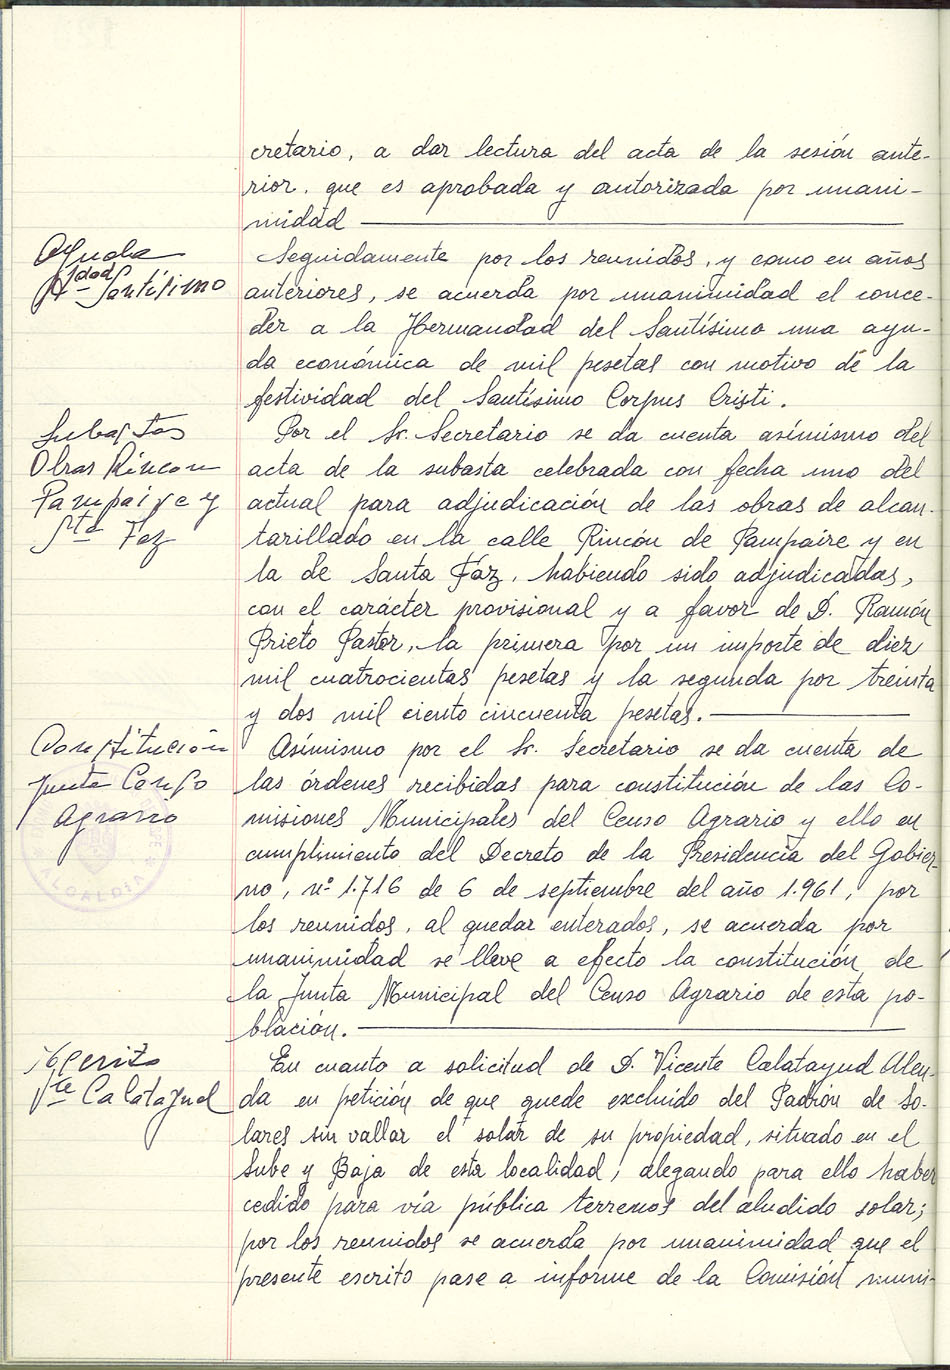 cretario, a dar lectura del acta de la sesión ante-
rior, que es aprobada y autorizada por unani-
midad
Ayuda
Hdad Santísimo
Seguidamente por los reunidos, y como en años
anteriores, se acuerda por unanimidad el conce-
der a la Hermandad del Santísimo una ayu-
da económica de mil pesetas con motivo de la
festividad del Santísimo Corpus Cristi.
Subastas
Obras Rincon
Pampaire y
Sta Faz
Por el Sr. Secretario se da cuenta asímismo del
acta de la subasta celebrada con fecha uno del
actual para adjudicación de las obras de alcan-
tarillado en la calle Rincón de Pampaire y en
la de Santa Faz, habiendo sido adjudicadas,
con el carácter provisional y a favor de D. Ramón
Prieto Pastor, la primera por un importe de diez
mil cuatrocientas pesetas y la segunda por treinta
y dos mil ciento cincuenta pesetas.
Constitución
Junta Censo
Agrario
ALCALDIA
Asímismo por el Sr. Secretario se da cuenta de
las órdenes recibidas para constitución de las Co-
misiones Municipales del Censo Agrario y ello en
cumplimiento del Decreto de la Presidencia del Gobier-
no, nº 1.716 de 6 de septiembre del año 1.961, por
los reunidos, al quedar enterados, se acuerda por
unanimidad se lleve a efecto la constitución de
la Junta Municipal del Censo Agrario de esta po-
blación.
Escrito
Vte Calatayud
En cuanto a solicitud de D. Vicente Calatayud Alen-
da en petición de que quede excluido del Padrón de So-
lares sin vallar el solar de su propiedad, situado en el
Sube y Baja de esta localidad, alegando para ello haber
cedido para vía pública terrenos del aludido solar;
por los reunidos se acuerda por unanimidad que el
presente escrito pase a informe de la Comisión muni-